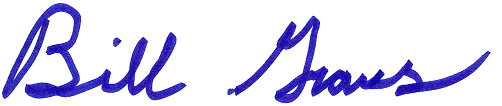 Bill Graves